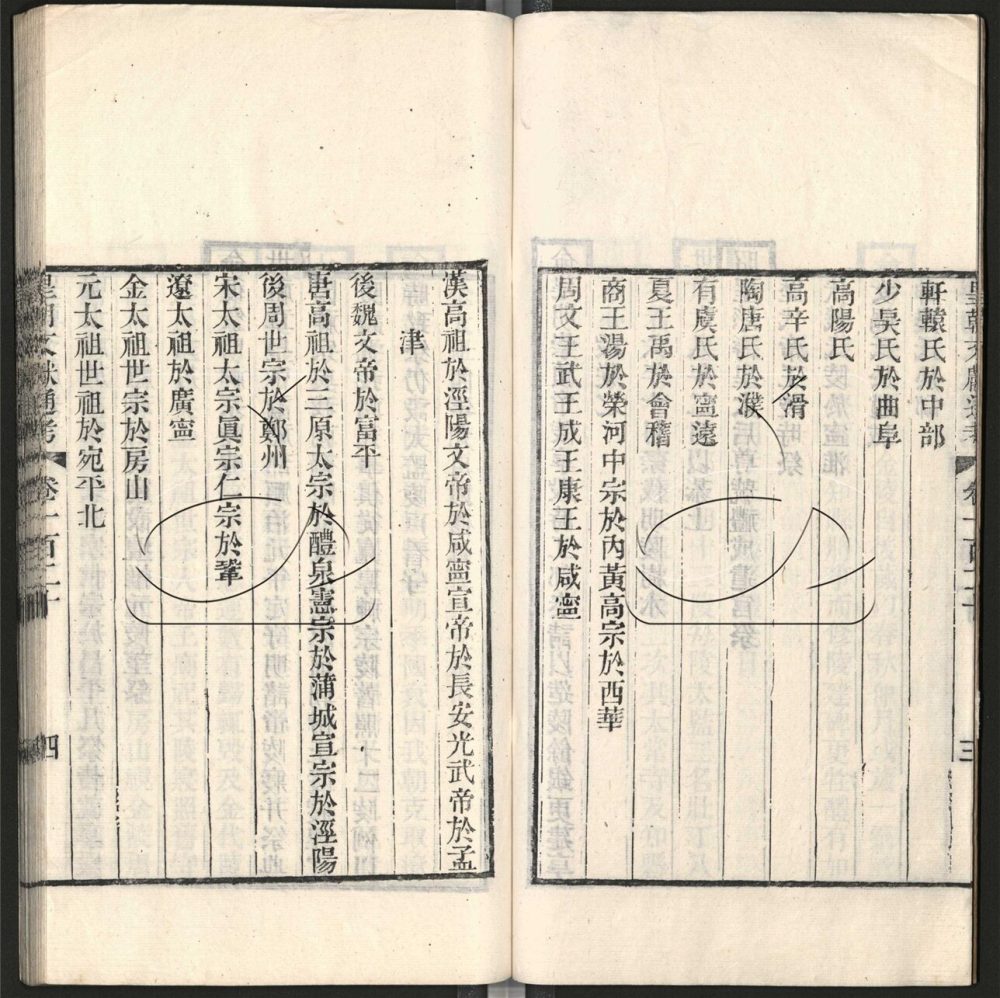 皇朝文獻通考 卷一百二十 三
軒轅氏於中部
少昊氏於曲阜
高陽氏
高辛氏於滑
陶唐氏於濮
有虞氏於甯遠
夏王禹於會稽
商王湯於榮河中宗於內黃高宗於西華
周文王武王成王康王於咸甯
漢高祖於涇陽文帝於咸甯宣帝於長安光武帝於孟
津
後魏文帝於富平
唐高祖於三原太宗於醴泉憲宗於蒲城宣宗於涇陽
後周世宗於鄭州
宋太祖太宗眞宗仁宗於鞏
遼太祖於廣甯
金太祖世宗於房山
元太祖世祖於宛平北
皇朝文獻通考 卷一百二十 四